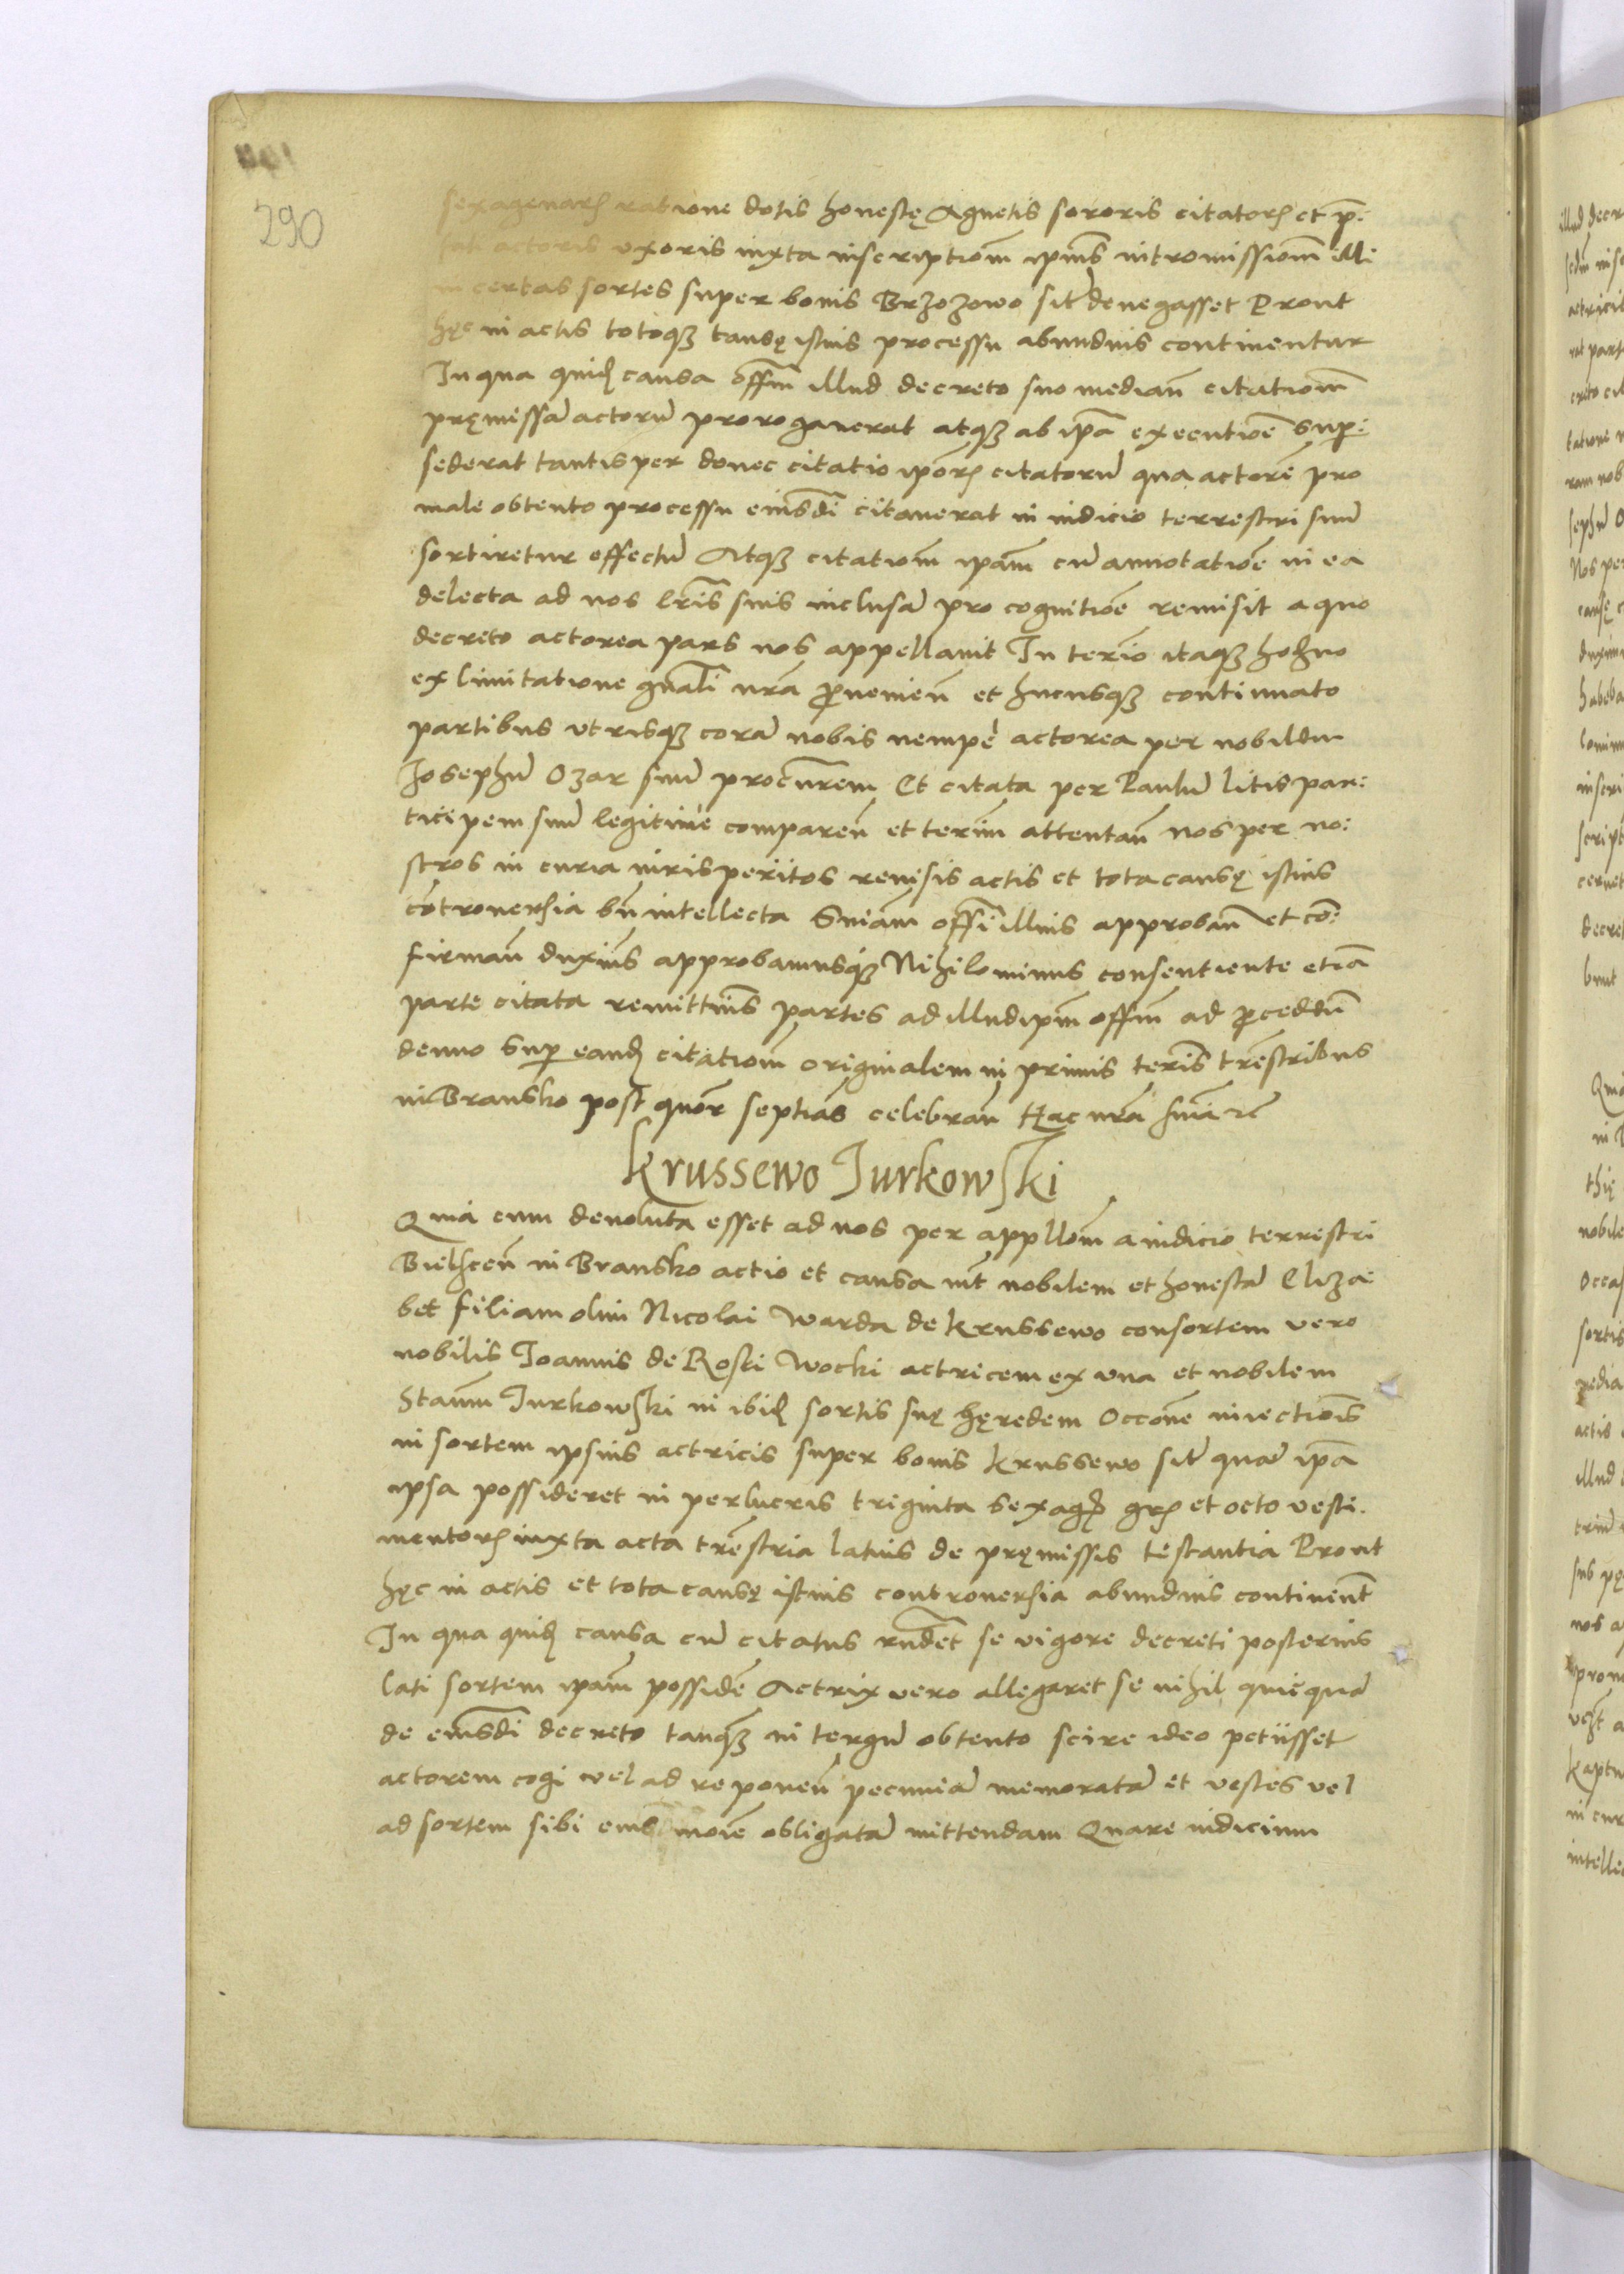 290
sexagenarꝝ ratione dotis honestę Agnetis sororis citatorꝝ et p̄:
fati actoris uxoris iuxta inscriptiom̄ ipīus intromissiom̄ illi
in certas sortes super bonis Brzozowo sitꝭ denegasset Prout
hęc in actis totoqꝫ causę istius processu abundius continentur
In qua quidꝫ causa offm̄ illud decreto suo median̄ citatiom̄
pręmissā actorū prorogauerat atqꝫ ab ip̄a executiōe sup̄:
sederat tantisper donec citatio ipōrꝝ citatorū qua actorē pro
male obtento processu eiusdi̅ citauerat in iudicio terrestri suū
sortiretur effectū Atqꝫ citatiom̄ ipām cū annotatiōe in ea
delecta ad nos lr̄is suis inclusā pro cognitiōe remisit a quo
decreto actorea pars nos appellauit In terīo itaqꝫ hodierno
ex limitatione gn̄ali nr̄a ꝓuenien̄ et hucusqꝫ continuato
partibus utrisqꝫ corā nobis nempè actorea per nobilem
Josephū Ozar suū procūrem Et citata per Paulū litis par:
ticipem suū legitime comparen̄ et terīm attentan̄ nos per no:
stros in curia iurisperitos reuisis actis et tota causę istius
cōtrouersia bn̄ intellecta Sniām offi̅ illius approban̄ et cō:
firman̄ duxīus approbamusqꝫ Nihilominus consentiente etiā
parte citata remittim̄s partes ad illud ipm̄ offm̄ ad ꝓcedēdū
denuo sup̄ eandꝫ citatiom̄ originalem in primis terīs tr̄estribus
in Bransko post quōr septīas celebran̄ Hac nr̄a sniā rē
Krussewo Jurkowski
Quia cum deuoluta esset ad nos per appllōm a iudicio terrestri
Bielscen̄ in Bransko actio et causa int̄ nobilem et honestā Eliza
bet filiam olim Nicolai Warda de Krussewo consortem vero
nobilis Joannis de Roski Wocki actricem ex una et nobilem
Stanm̄ Jurkowski in ibidꝫ sortis suę hęredem Occōne iniectiōis
in sortem ipsius actricis super bonis Krussewo sitꝭ quā ip̄a
ipsa possideret in perlucris triginta sexagꝫ grꝫ et octo vesti.
mentorꝝ iuxta acta tr̄estria latius de pręmissis testantia Prout
hęc in actis et tota causę istius controuersia abundius continent̄
In qua quidꝫ causa cū citatus rn̄det se vigore decreti posterius
lati sortem ipām possidē Actrix vero allegaret se nihil quicquā
de eiusdi̅ decreto tanqꝫ in tergū obtento scire ideo petiisset
actorem cogi vel ad reponen̄ pecuniā memoratā et vestes vel
ad sortem sibi moīe obligatā mittendam Quare iudicium